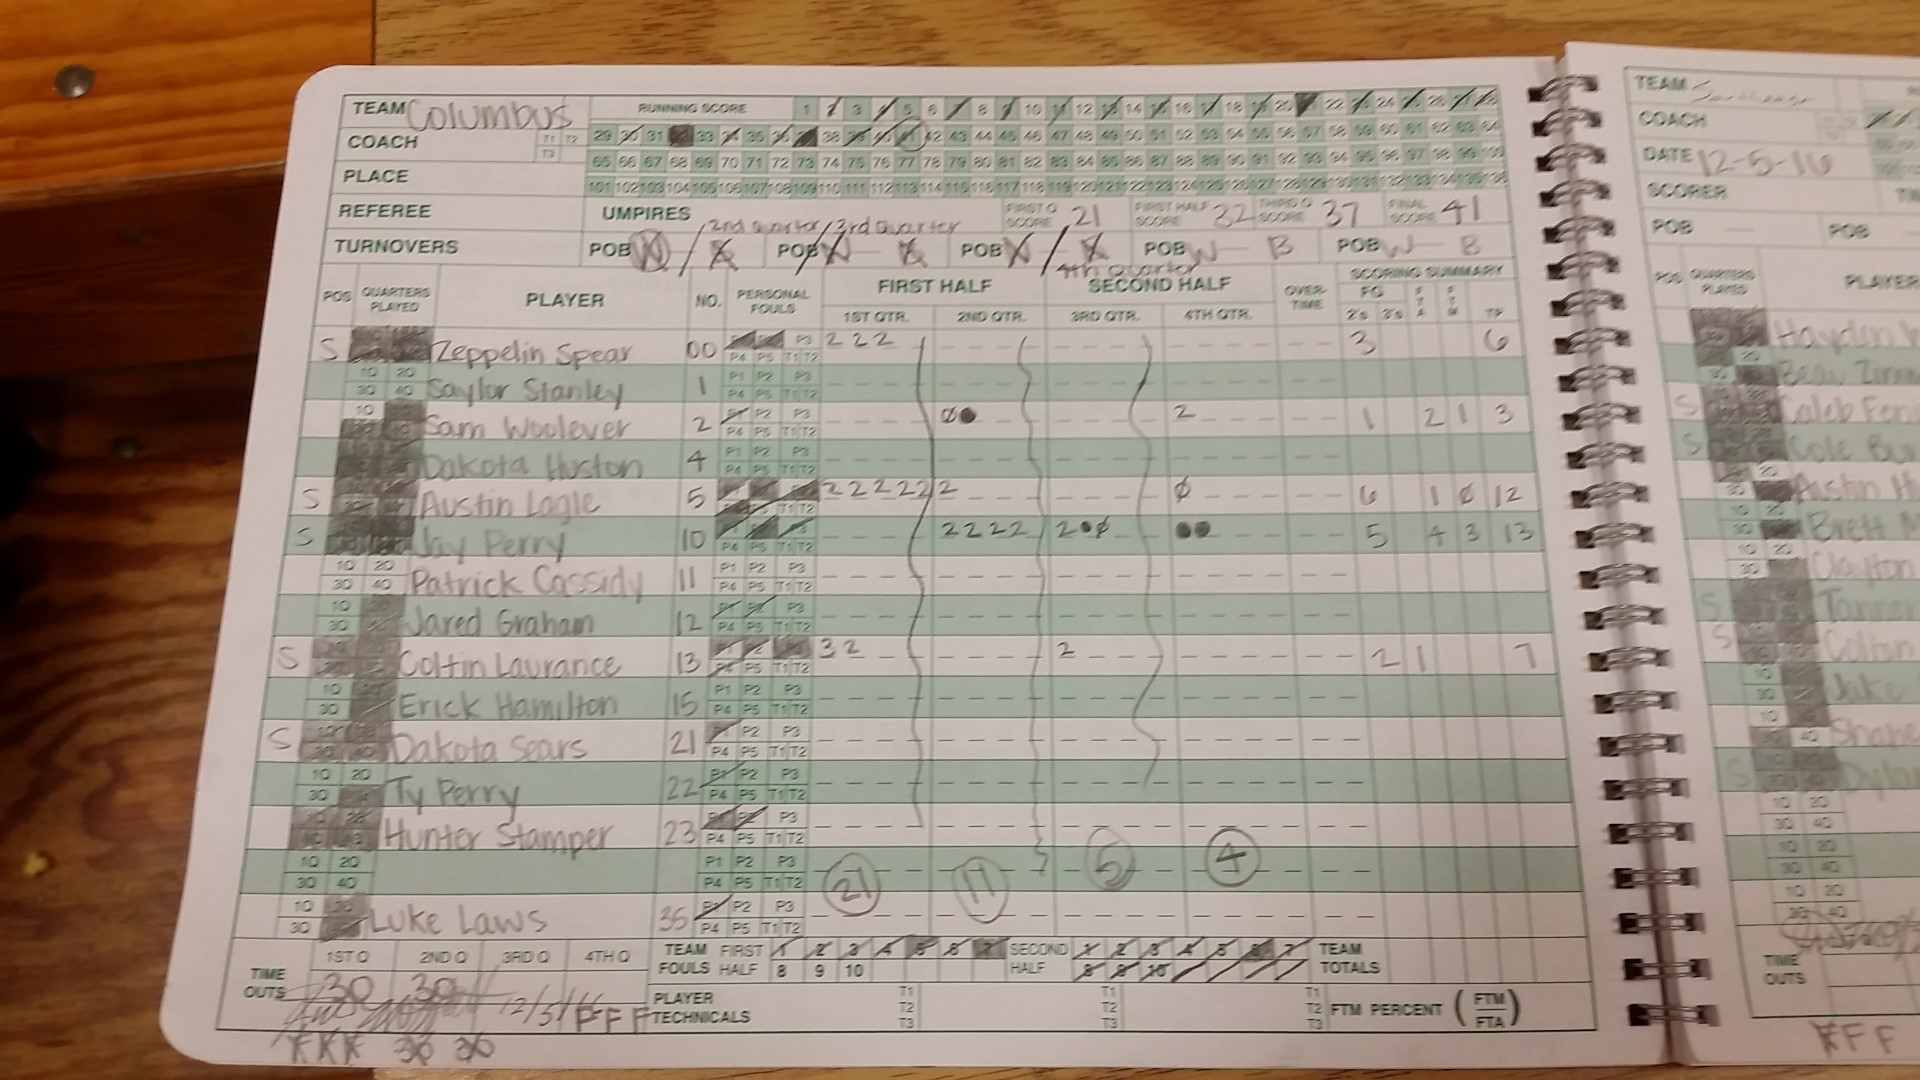 TEAM Columbus RUNNING SCORE 1 2 3 4 5 6 7 8 9 10 11 12 13 14 15 16 17 18 19 20 22 23 24 25 26 27 28
COACH T1 T2 T3 29 30 31 33 34 35 36 38 39 40 41 42 43 44 45 46 47 48 49 50 51 52 53 54 55 56 57 58 59 60 61 62 63 64
65 66 67 68 69 70 71 72 73 74 75 76 77 78 79 80 81 82 83 84 85 86 87 88 89 90 91 92 93 94 95 96 97 98 99 100
PLACE 101 102 103 104 105 106 107 108 109 110 111 112 113 114 115 116 117 118 119 120 121 122 123 124 125 126 127 128 129 130 131 132 133 134 135 136
REFEREE UMPIRES FIRST Q SCORE 21 FIRST HALF SCORE 32 THIRD Q SCORE 37 FINAL SCORE 41
2nd Quarter / 3rd Quarter
TURNOVERS POB W / POB POB / POB W B POB W B
4th Quarter
POS QUARTERS PLAYED PLAYER NO. PERSONAL FOULS FIRST HALF SECOND HALF OVER-TIME SCORING SUMMARY
1ST QTR. 2ND QTR. 3RD QTR. 4TH QTR. FG 2's 3's FTA FTM TP
S Zeppelin Spear 00 P3 P4 P5 T1 T2 2 2 2 3 6
10 20 30 40 Saylor Stanley 1 P1 P2 P3 P4 P5 T1 T2
10 Sam Woolever 2 P1 P2 P3 P4 P5 T1 T2 0 2 1 2 1 3
Dakota Huston 4 P1 P2 P3 P4 P5 T1 T2
S Austin Lagle 5 T1 T2 2 2 2 2 2 2 0 6 1 0 12
S Jay Perry 10 P4 P5 T1 T2 2 2 2 2 2 0 5 4 3 13
10 20 30 40 Patrick Cassidy 11 P1 P2 P3 P4 P5 T1 T2
10 30 Jared Graham 12 P1 P2 P3 P4 P5 T1 T2
S Coltin Laurance 13 P4 P5 T1 T2 3 2 2 2 1 7
10 30 Erick Hamilton 15 P1 P2 P3 P4 P5 T1 T2
S Dakota Sears 21 P2 P3 P4 P5 T1 T2
10 20 30 Ty Perry 22 P1 P2 P3 P4 P5 T1 T2
Hunter Stamper 23 P1 P2 P3 P4 P5 T1 T2
10 20 30 40 P1 P2 P3 P4 P5 T1 T2 21 11 5 4
10 30 Luke Laws 35 P1 P2 P3 P4 P5 T1 T2
TIME OUTS 1ST Q 2ND Q 3RD Q 4TH Q TEAM FOULS FIRST HALF 1 2 3 4 5 6 7 8 9 10 SECOND HALF 1 2 3 4 5 6 7 8 9 10 TEAM TOTALS
30 30
PLAYER TECHNICALS T1 T2 T3 T1 T2 T3 T1 T2 T3 FTM PERCENT (FTM/FTA)
FFF
30 30
TEAM
COACH
DATE 12-5-16
SCORER
POB POB
POS QUARTERS PLAYED PLAYER
Hayden
Beau
S Caleb
S Cole
Austin
Brett
Clayton
S Tanner
S Colton
Jake
Shane
S
TIME OUTS
FF